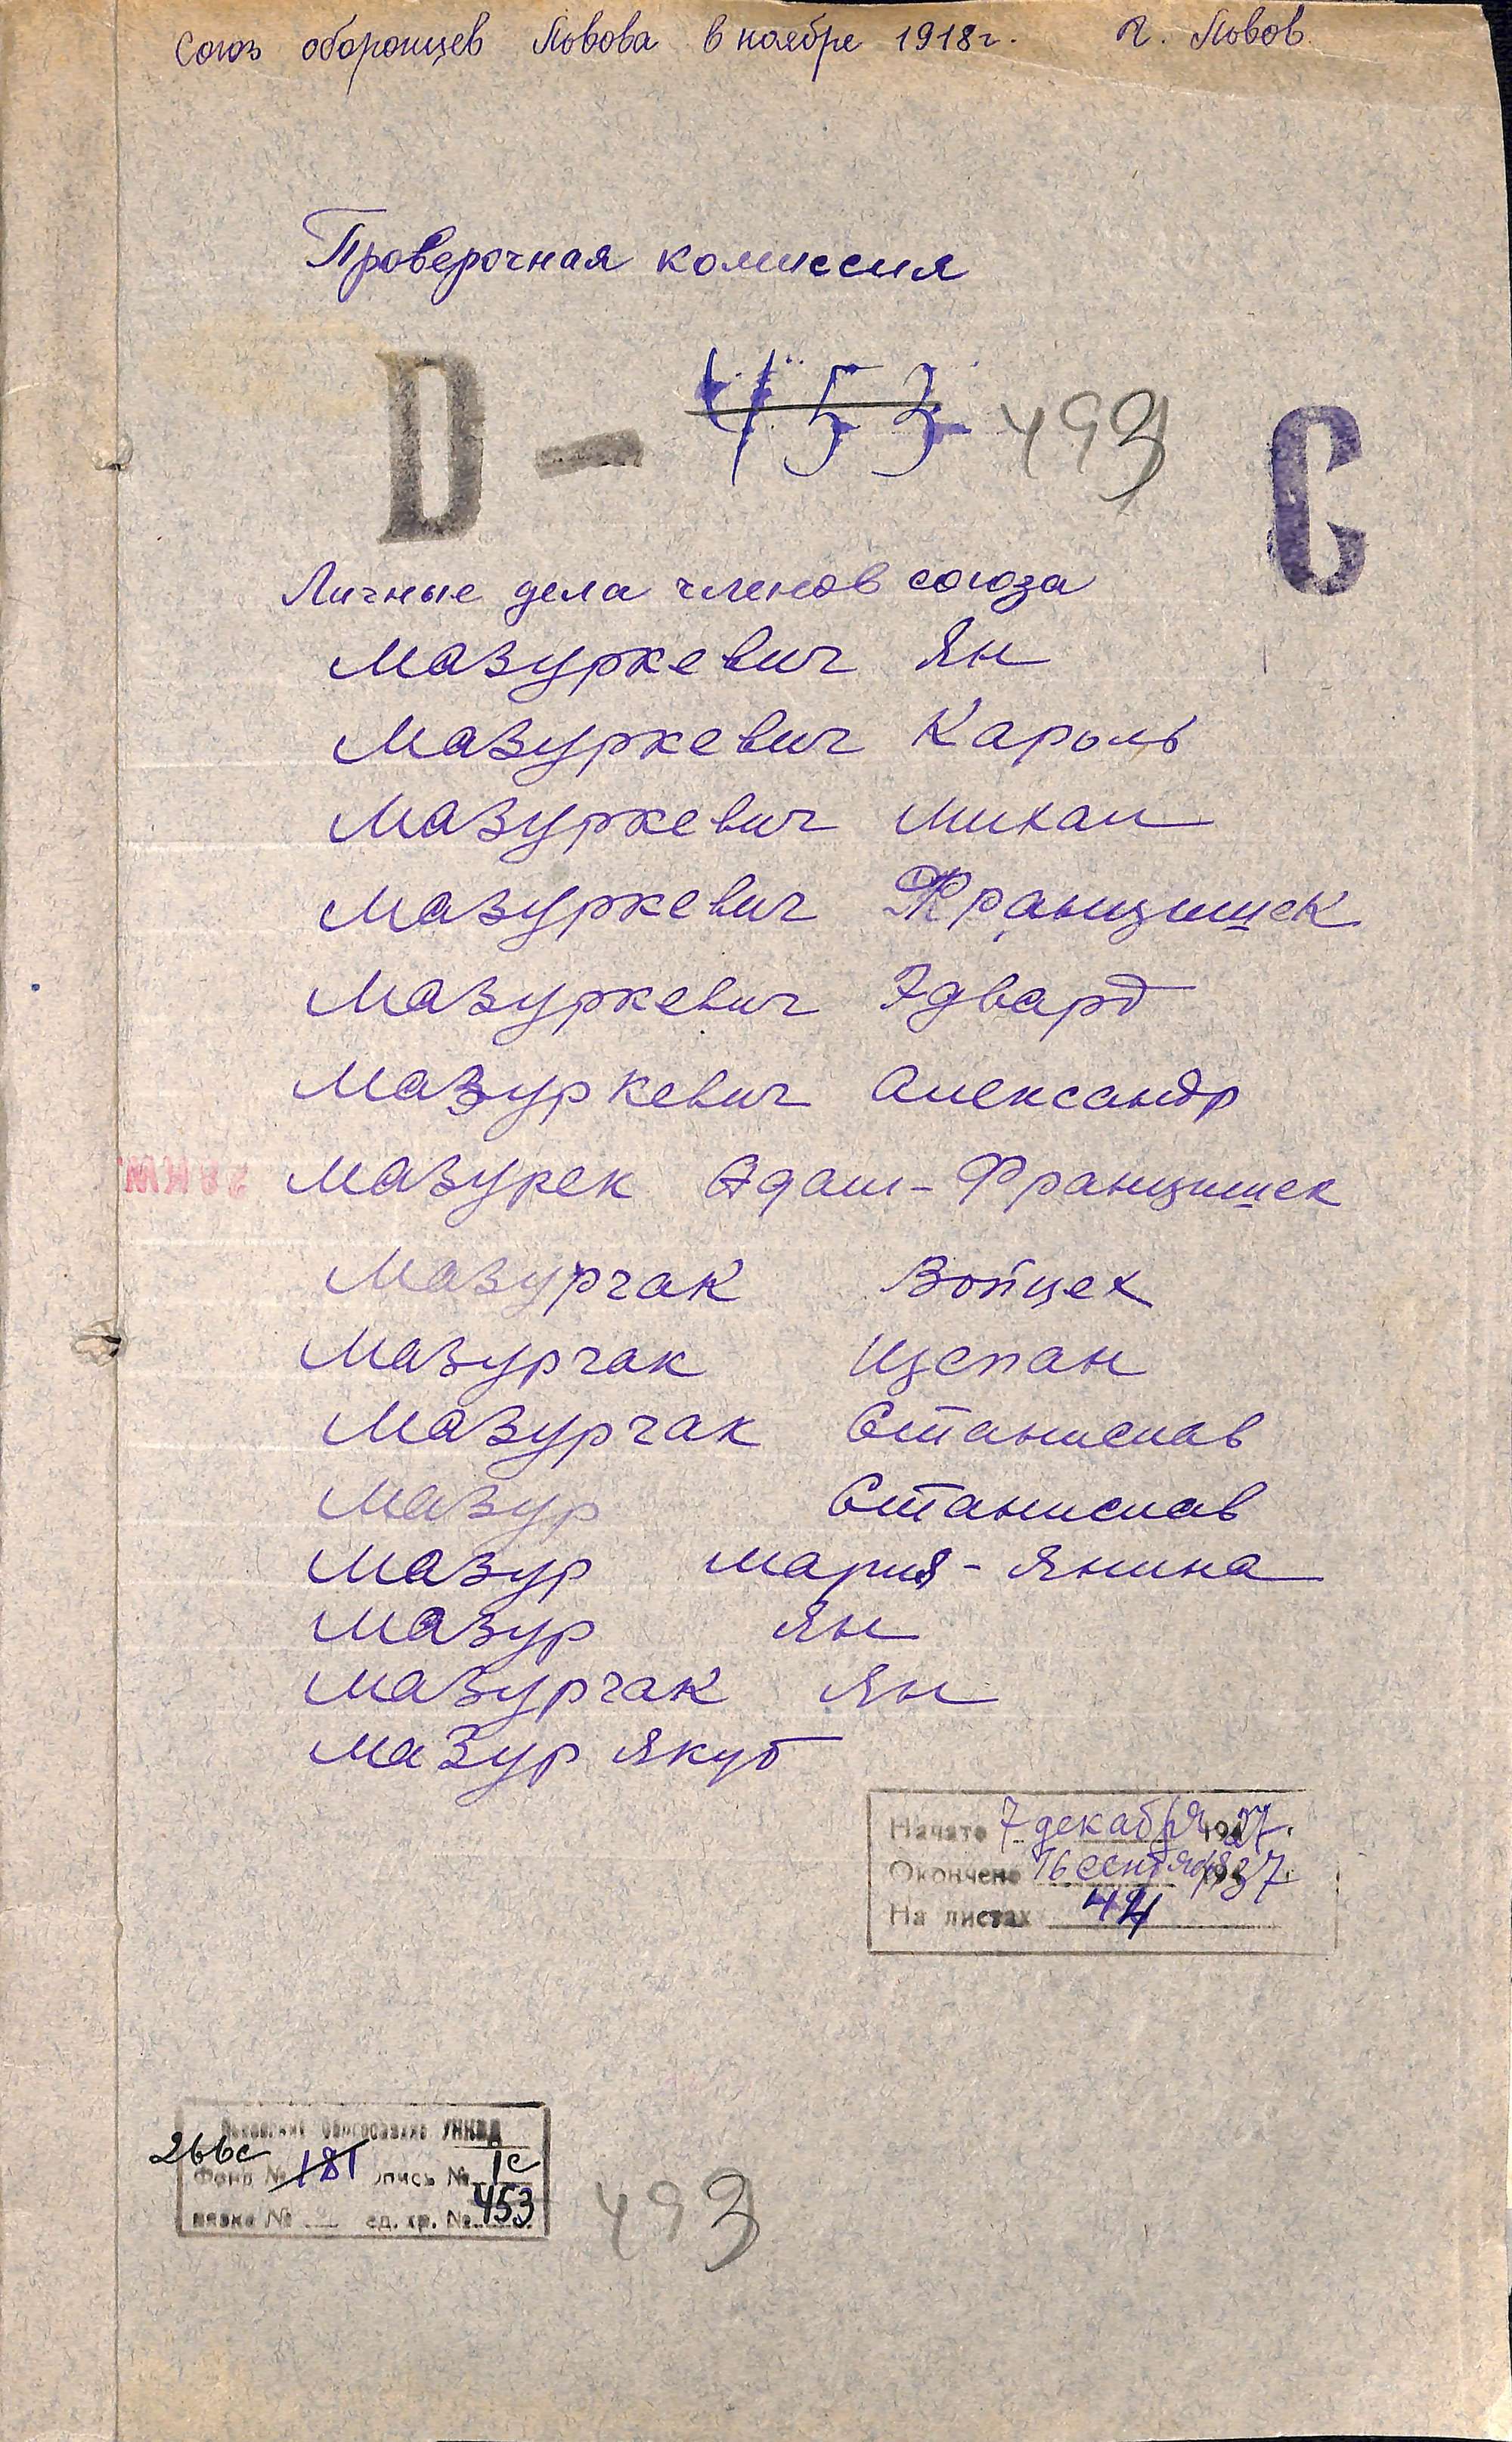 Союз оборонцев Львова в ноябре 1918г. г. Львов.
Проверочная комиссия
D - 453 493 C
Личные дела членов союза
Мазуркевич Ян
Мазуркевич Кароль
Мазуркевич Михал
Мазуркевич Францишек
Мазуркевич Эдвард
Мазуркевич Александр
Мазурек Адам-Францишек
Мазурчак Войцех
Мазурчак Щепан
Мазурчак Станислав
Мазур Станислав
Мазур Мария-Янина
Мазур Ян
Мазурчак Ян
Мазур Якуб
Начато 7 декабря 1927.
Окончено 16 сентября 1937
На листах 44
УНКВД
266с Фонд № 181 опись № 1с
вязка № ед. хр. № 453
493